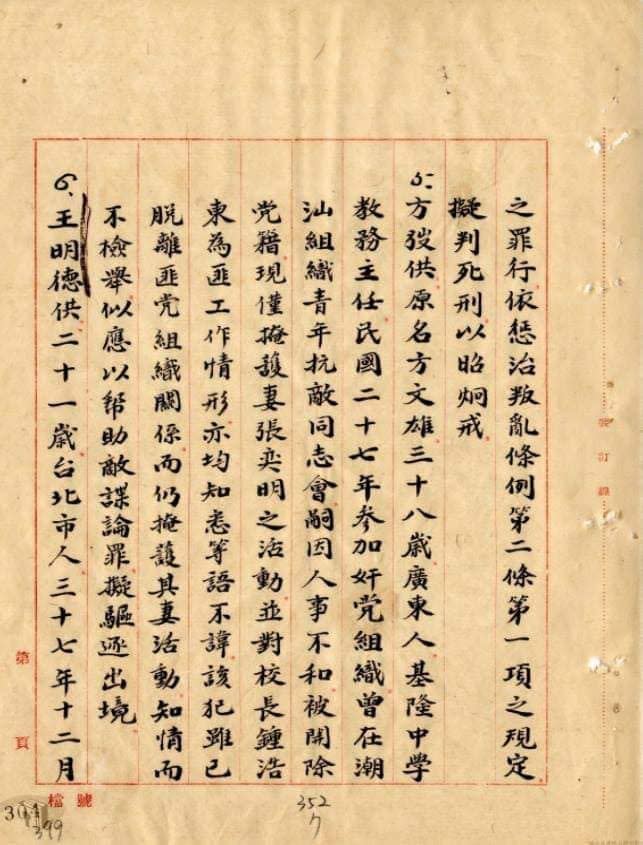 之罪行依懲治叛亂條例第二條第一項之規定
擬判死刑以昭炯戒
5、方弢供原名方文雄三十八歲廣東人基隆中學
教務主任民國二十七年參加奸党組織曾在潮
汕組織青年抗敵同志會嗣因人事不和被開除
党籍現僅掩護妻張奕明之活動並對校長鍾浩
東為匪工作情形亦均知悉等語不諱該犯雖已
脱離匪党組織關係而仍掩護其妻活動知情而
不檢舉似應以幫助敵諜論罪擬驅逐出境
6、王明德供二十一歲台北市人三十七年十二月
裝訂線
第 頁
檔號
352
7
304
399